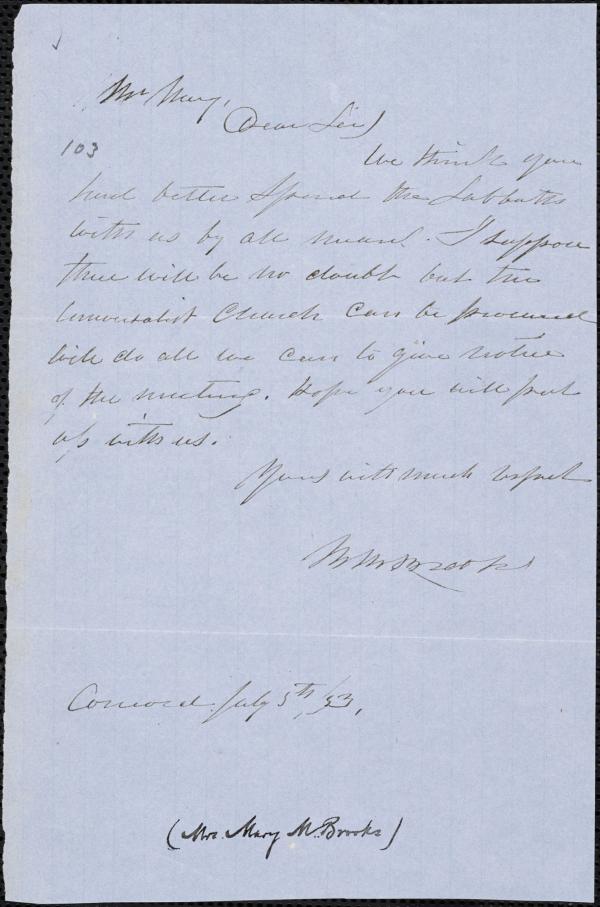 Mr May,
Dear Sir
103
We think you
had better spend the Sabbath
with us by all means. I suppose
there will be no doubt but the
Universalist Church can be procured
will do all we can to give notice
of the meeting. Hope you will put
up with us.
Yours with much respect
M M Brooks
Concord July 5th/53.
(Mrs. Mary M. Brooks)